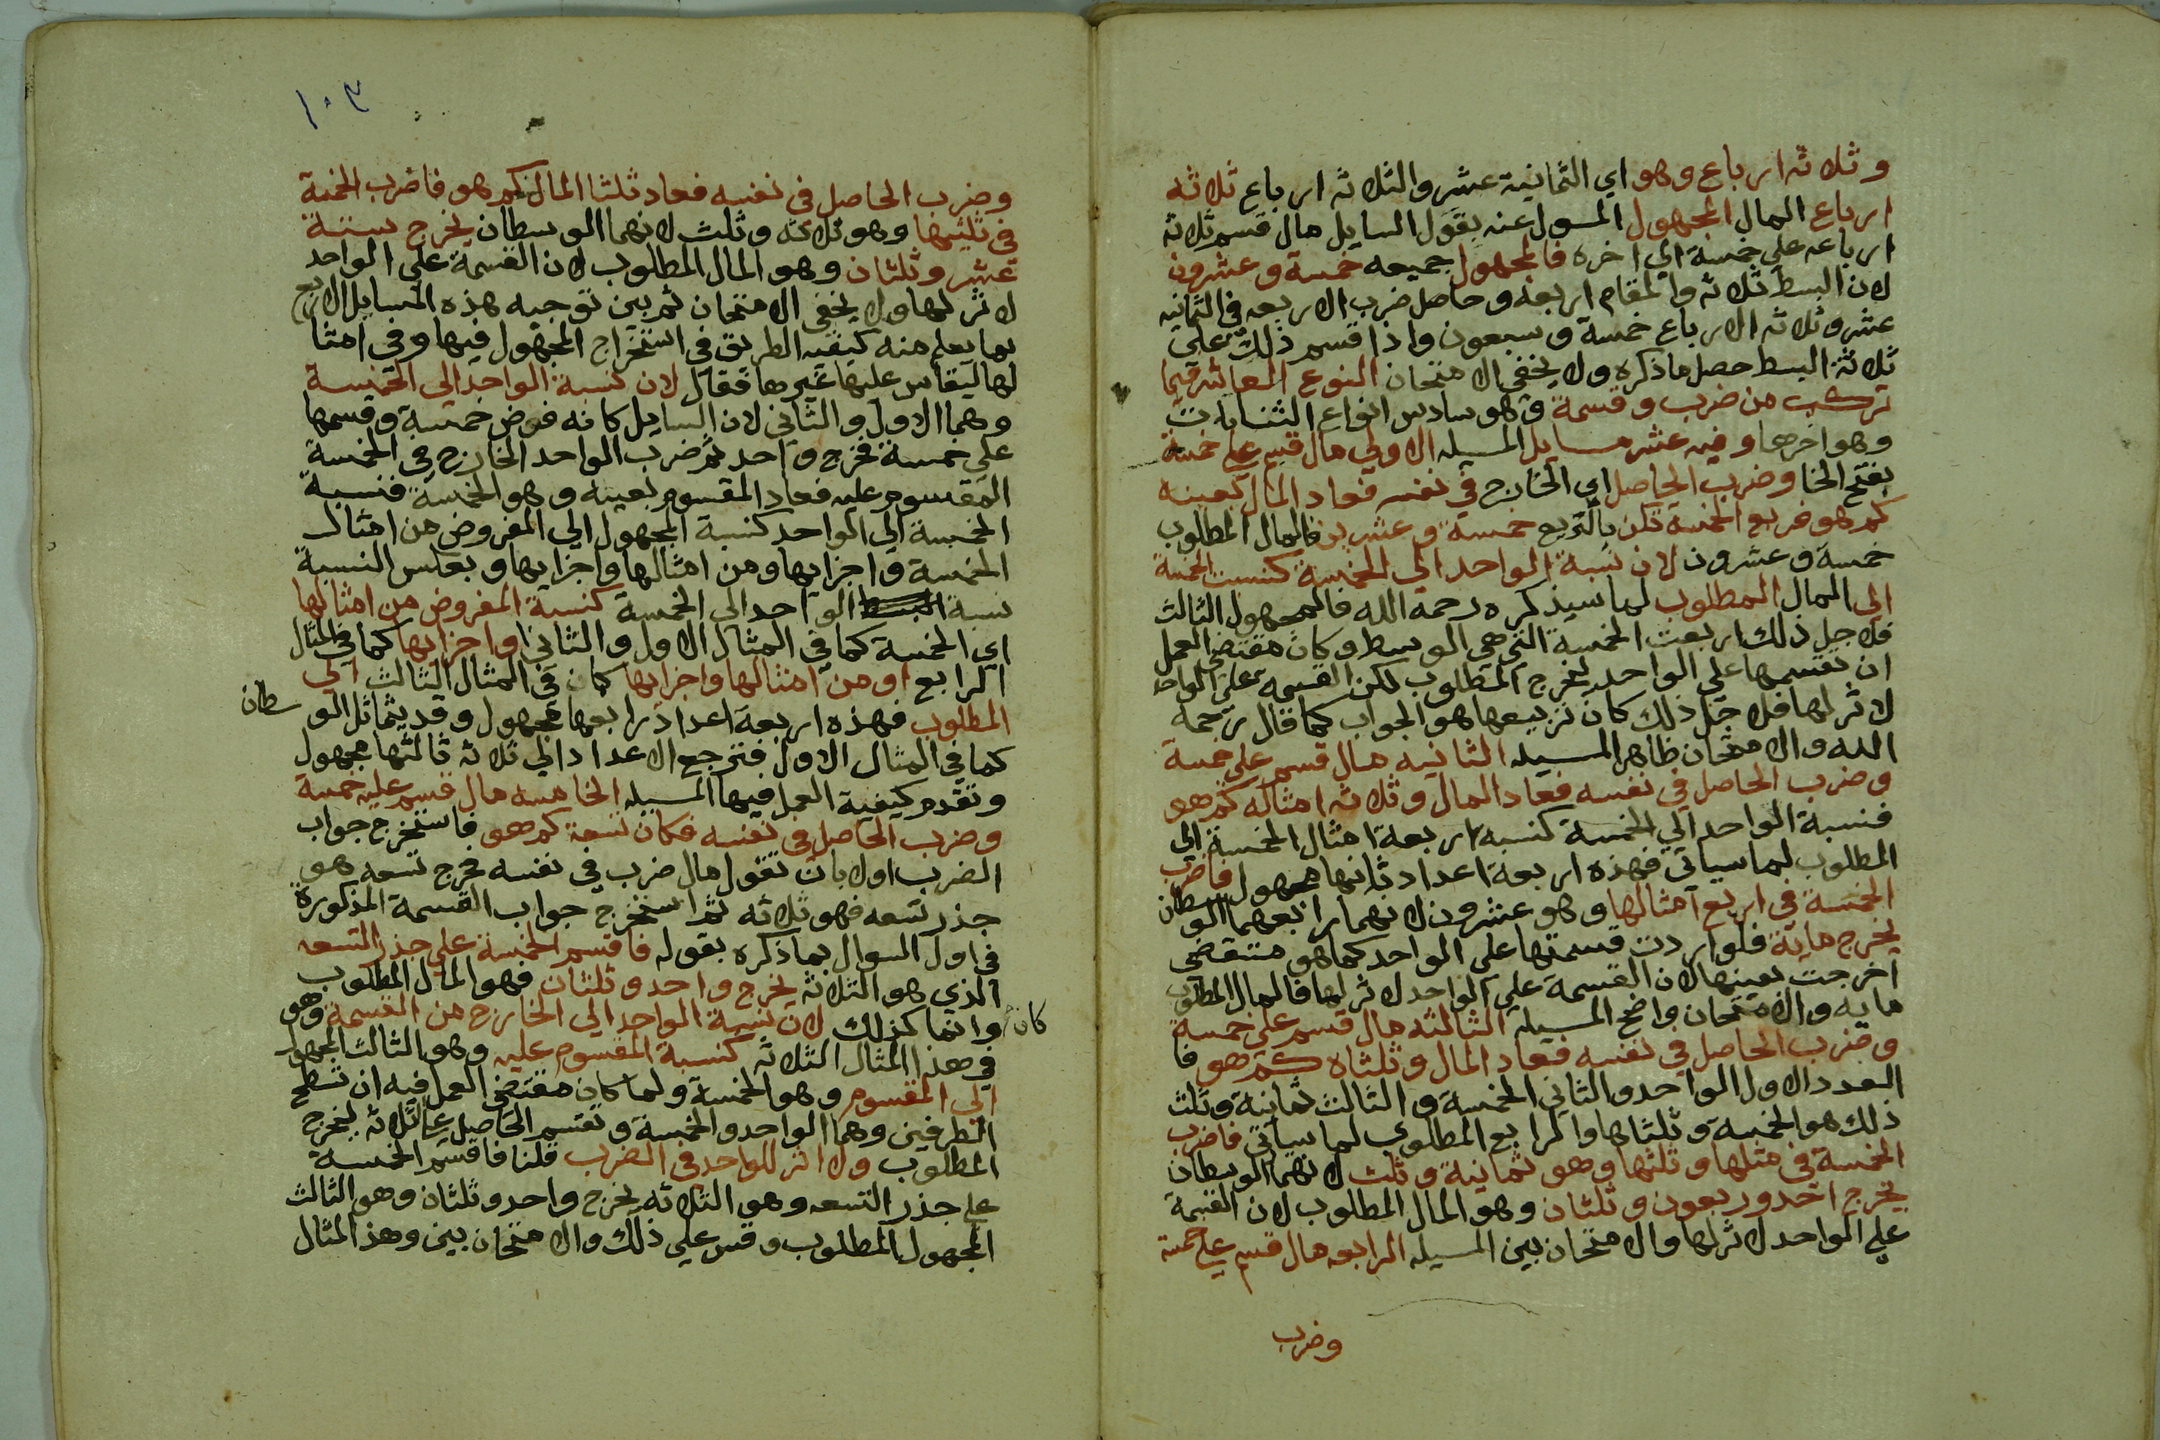 وثلاثه ارباع وهو اي الثمانية عشر والثلاثه ارباع ثلاثه
ارباع المال المجهول المسول عنه بقول السايل مال قسم ثلاثه
ارباعه على خمسة الى اخره فالمجهول جميعه خمسة وعشرون
لان البسط ثلاثه والمقام اربعه وحاصل ضرب الاربعه في الثمانيه
عشر وثلاثه الارباع خمسة وسبعون واذا قسم ذلك على
ثلاثة البسط حصل ما ذكره ولا يخفى الامتحان النوع العاشر فيما
تركب من ضرب وقسمة وهو سادس انواع الثنايات
وهو اخرها وفيه عشر مسايل المسيله الاولى مال قسم على خمسة
بفتح الخا وضرب الحاصل اي الخارج في نفسه فعاد المال بعينه
كم هو فربع الخمسة تكن بالتربيع خمسة وعشرين فالمال المطلوب
خمسة وعشرون لان نسبة الواحد الى الخمسة كنسبت الخمسة
الى المال المطلوب لما سيذكره رحمه الله فالمجهول الثالث
فلاجل ذلك اربعت الخمسة التي هي الوسط وكان مقتضى العمل
ان تقسمها على الواحد ليخرج المطلوب لكن القسمة على الواحد
لا ثر لها فلاجل ذلك كان تربيعها هو الجواب كما قال رحمه
الله والامتحان ظاهر المسيله الثانيه مال قسم على خمسة
وضرب الحاصل في نفسه فعاد المال وثلاثه امثاله كم هو
فنسبة الواحد الى الخمسة كنسبة اربعة امثال الخمسة الى
المطلوب لما سياتى فهذه اربعة اعداد ثانيها مجهول فاضرب
الخمسة في اربع امثالها وهو عشرون لانهما رابعهما الوسطان
يخرج ماية فلو اردت قسمتها على الواحد كما هو مقتضى
اخرجت بعينها لان القسمة على الواحد لا ثر لها فالمال المطلوب
مايه والامتحان واضح المسيله الثالثه مال قسم على خمسة
وضرب الحاصل في نفسه فعاد المال وثلثاه كم هو فا
العدد الاول الواحد والثاني الخمسة والثالث ثمانية وثلث
ذلك هو الخمسة وثلثاها والرابع المطلوب لما سياتى فاضرب
الخمسة في مثلها وثلثها وهو ثمانية وثلث لانهما الوسطان
يخرج احد وربعون وثلثان وهو المال المطلوب لان القسمة
على الواحد لا ثر لها والامتحان بين المسيله الرابعه مال قسم على خمسة
وضرب
١٠٣
وضرب الحاصل في نفسه فعاد ثلثا المال كم هو فاضرب الخمسة
في ثلثيها وهو ثلاثه وثلث لانهما الوسطان يخرج ستة
عشر وثلثان وهو المال المطلوب لان القسمة على الواحد
لا ثر لها ولا يخفى الامتحان ثم بين توجيه هذه المسايل الاربع
بما يعلم منه كيفيه الطريق في استخراج المجهول فيها وفي امثا
لها ليقاس عليها غيرها فقال لان كنسبة الواحد الى الخمسة
وهما الاول والثاني لان السايل كانه فوض خمسة وقسمها
على خمسة فخرج واحد ثم ضرب الواحد الخارج في الخمسة
المقسوم عليه فعاد المقسوم بعينه وهو الخمسة فنسبة
الخمسة الى الواحد كنسبة المجهول الى المفروض من امثال
الخمسة واجزايها ومن امثالها واجزايها وبعكس النسبة
نسبة الواحد الى الخمسة كنسبة المفروض من امثالها
اي الخمسة كما في المثال الاول والثاني او اجزايها كما في المثال
الرابع او من امثالها واجزايها كان في المثال الثالث الى
المطلوب فهذه اربعة اعداد رابعها مجهول وقد يتماثل الو سطان
كما في المثال الاول فترجع الاعداد الى ثلاثه ثالثها مجهول
وتقدم كيفية العمل فيها المسيله الخامسه مال قسم عليه خمسة
وضرب الحاصل في نفسه فكان تسعة كم هو فاستخرج جواب
الضرب اولا بان تقول مال ضرب في نفسه فخرج تسعه هو
جذر تسعه فهو ثلاثه ثم استخرج جواب القسمة المذكورة
في اول السوال بما ذكره بقوله فاقسم الخمسة على جذر التسعه
الذي هو الثلاثه يخرج واحد وثلثان فهو المال المطلوب
كان وانما كذلك لان نسبة الواحد الى الخارج من القسمة وهو
في هذا المثال الثلاثه كنسبة المقسوم عليه وهو الثالث المجهول
الى المقسوم وهو الخمسة ولما كان مقتضى العمل فيه ان تسطح
الطرفين وهما الواحد والخمسة وتقسم الحاصل على الثلاثه ليخرج
المطلوب ولا اثر للواحد في الضرب قلنا فاقسم الخمسة
على جذر التسعه وهو الثلاثه يخرج واحد وثلثان وهو الثالث
المجهول المطلوب وقس على ذلك والامتحان بين وهذا المثال